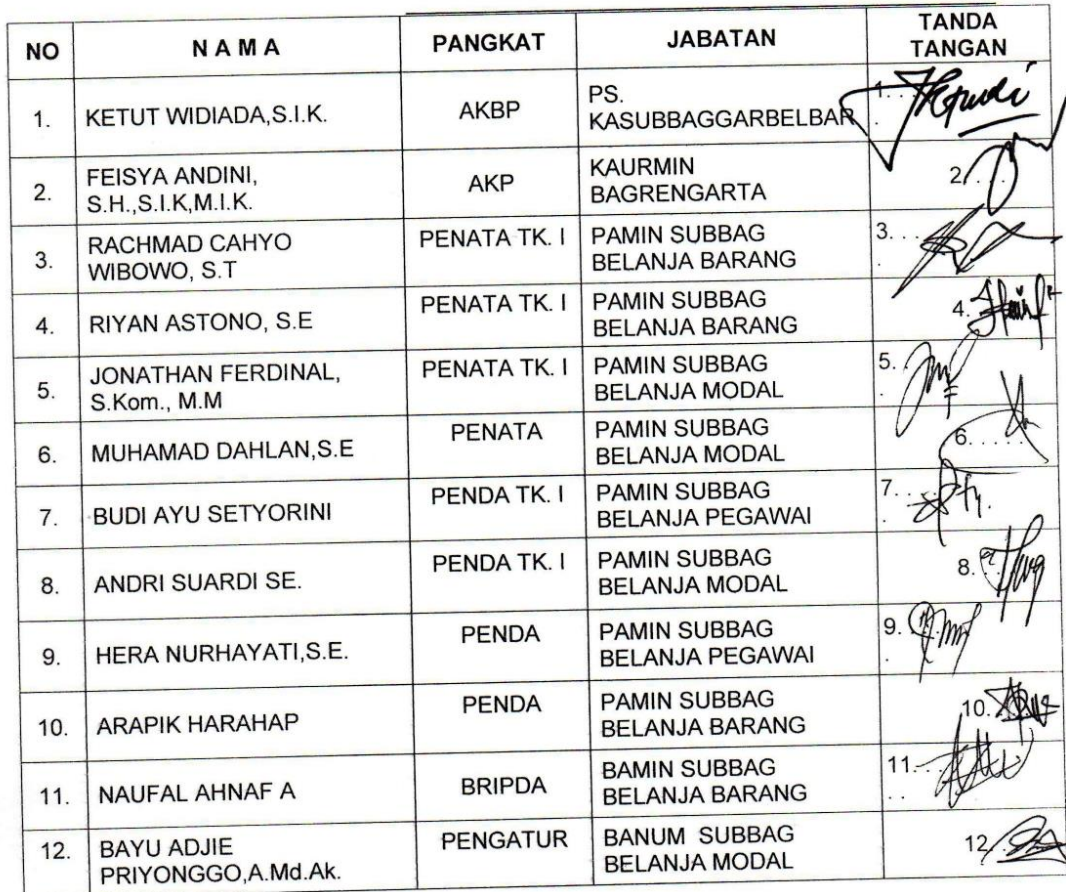 NO NAMA PANGKAT JABATAN TANDA
TANGAN
1. KETUT WIDIADA,S.I.K. AKBP PS.
KASUBBAGGARBELBAR 1. . .
2. FEISYA ANDINI,
S.H.,S.I.K,M.I.K. AKP KAURMIN
BAGRENGARTA 2. . .
3. RACHMAD CAHYO
WIBOWO, S.T PENATA TK. I PAMIN SUBBAG
BELANJA BARANG 3. . .
4. RIYAN ASTONO, S.E PENATA TK. I PAMIN SUBBAG
BELANJA BARANG 4.
5. JONATHAN FERDINAL,
S.Kom., M.M PENATA TK. I PAMIN SUBBAG
BELANJA MODAL 5. .
6. MUHAMAD DAHLAN,S.E PENATA PAMIN SUBBAG
BELANJA MODAL 6. . . .
7. BUDI AYU SETYORINI PENDA TK. I PAMIN SUBBAG
BELANJA PEGAWAI 7. . .
8. ANDRI SUARDI SE. PENDA TK. I PAMIN SUBBAG
BELANJA MODAL 8. .
9. HERA NURHAYATI,S.E. PENDA PAMIN SUBBAG
BELANJA PEGAWAI 9. .
10. ARAPIK HARAHAP PENDA PAMIN SUBBAG
BELANJA BARANG 10.
11. NAUFAL AHNAF A BRIPDA BAMIN SUBBAG
BELANJA BARANG 11. . .
12. BAYU ADJIE
PRIYONGGO,A.Md.Ak. PENGATUR BANUM SUBBAG
BELANJA MODAL 12